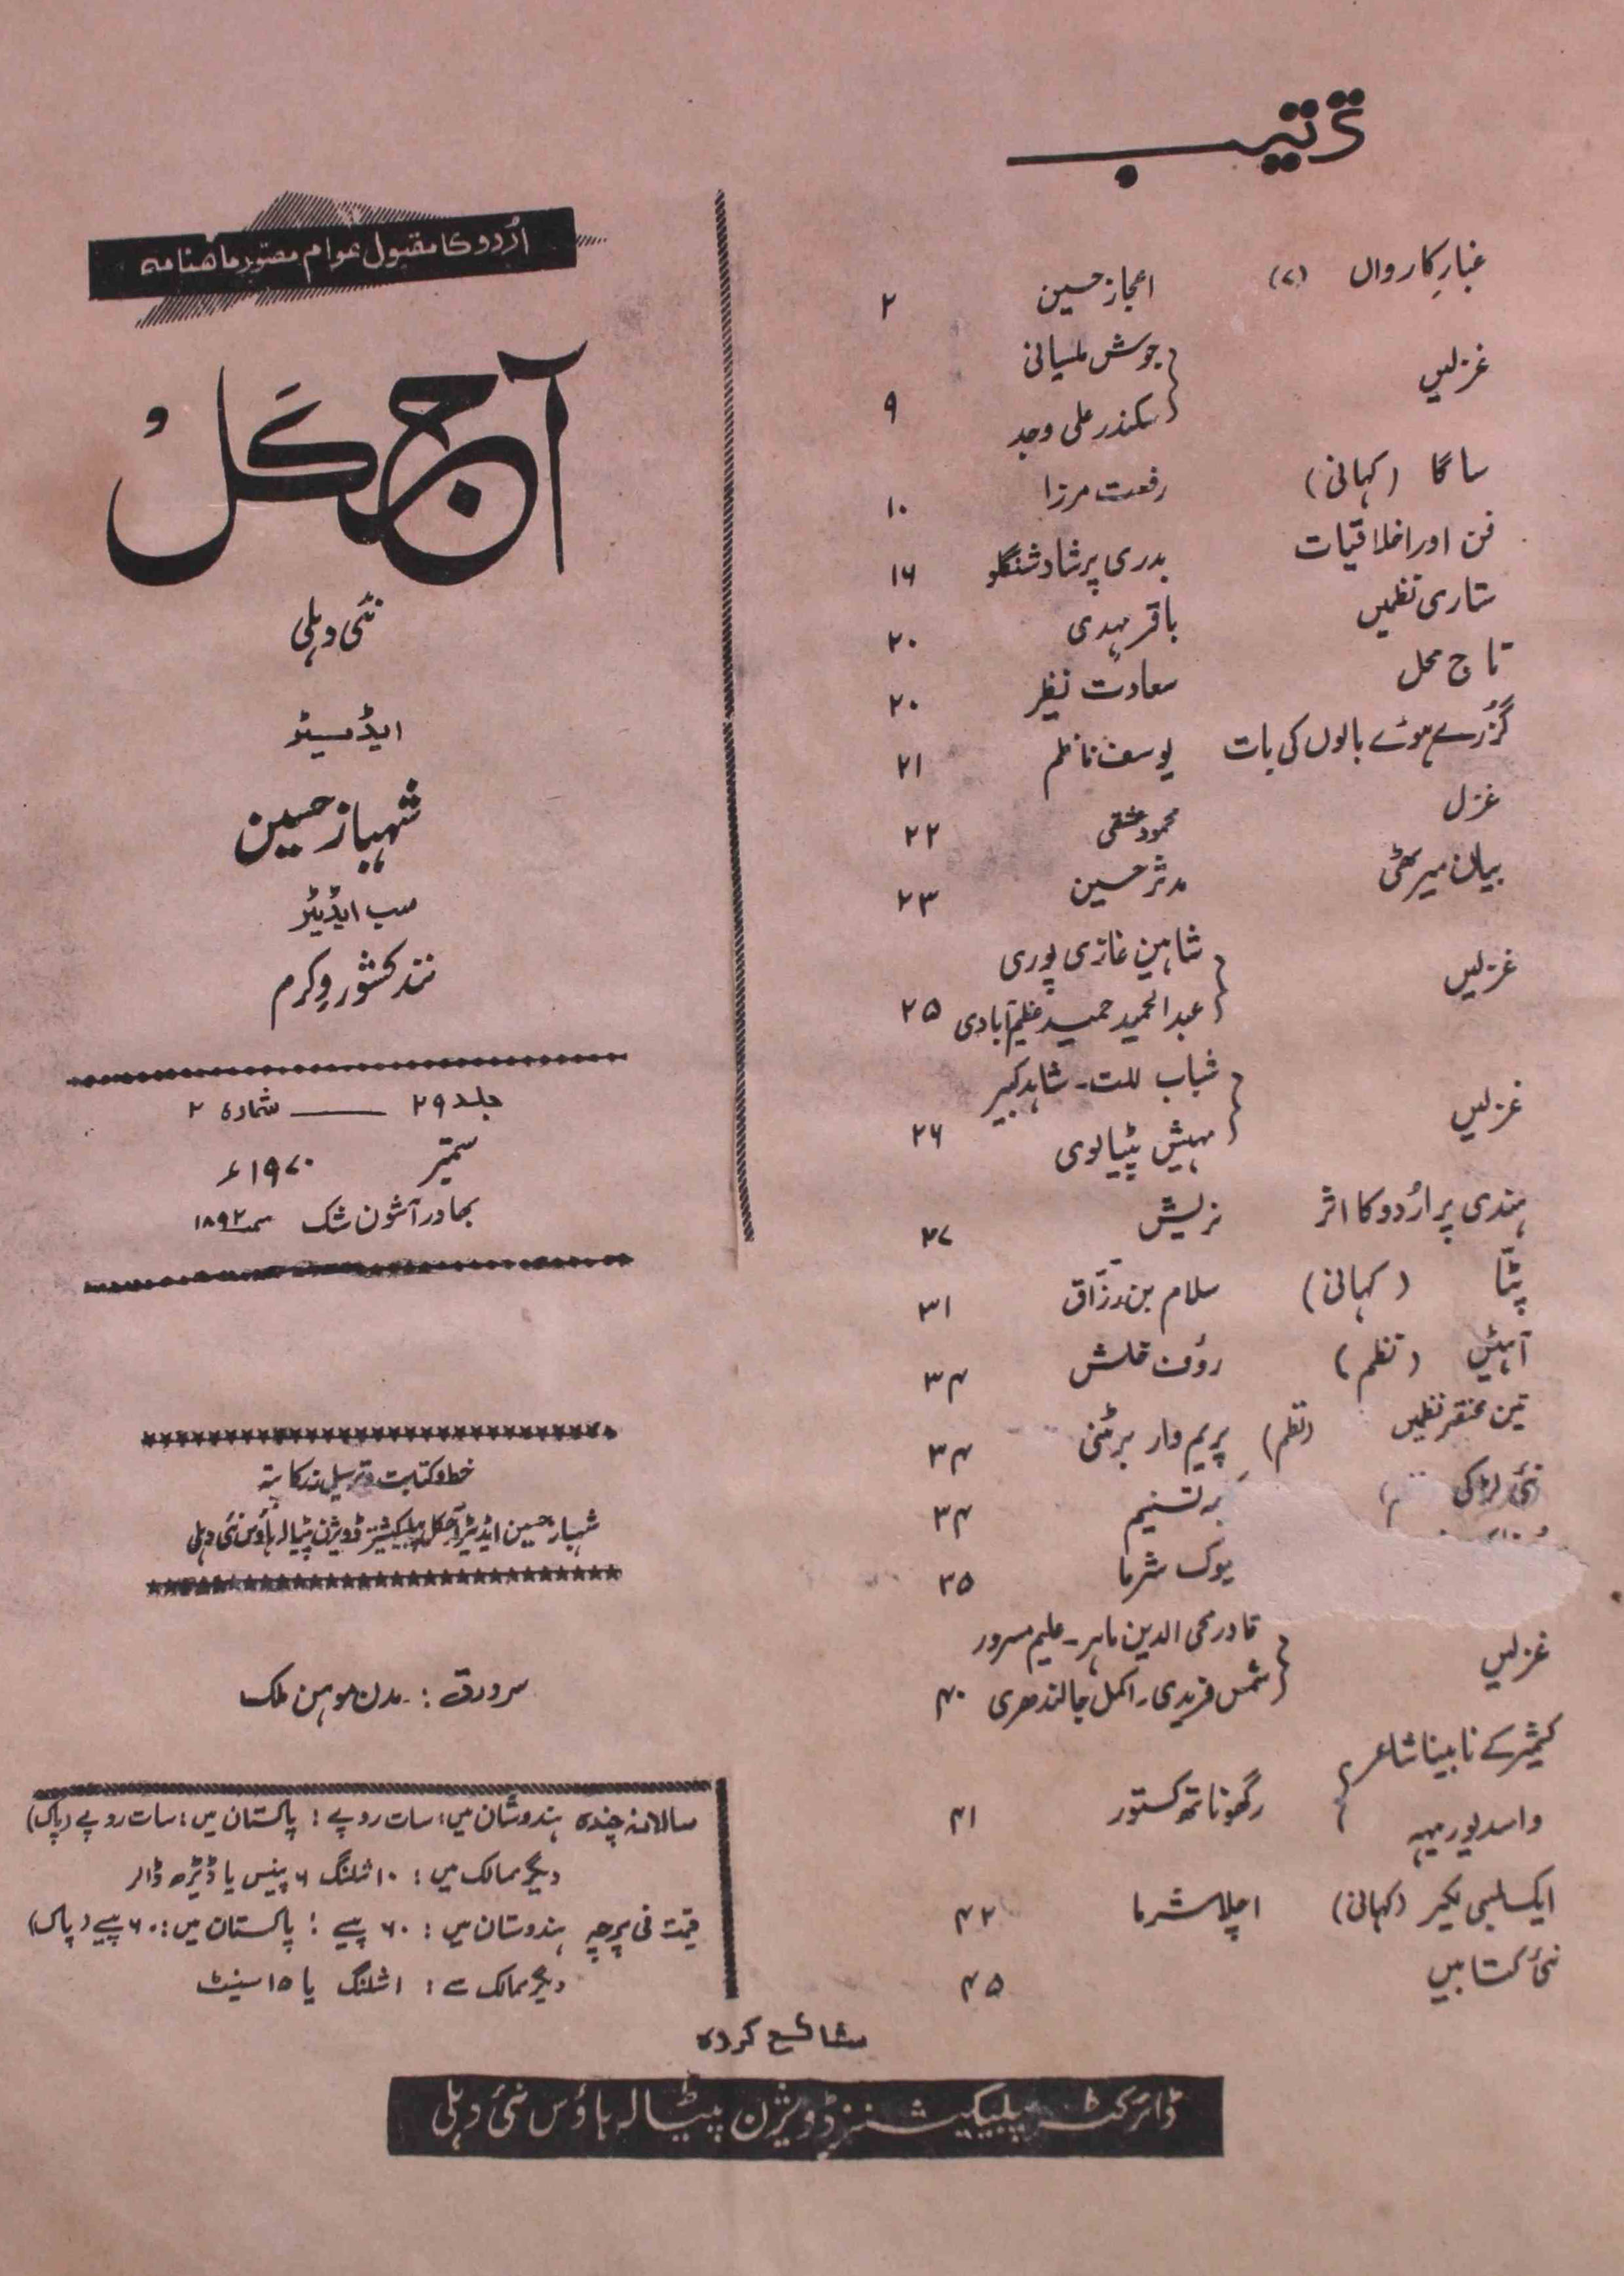 ترتیب
غبارِ کارواں (۷) اعجاز حسین ۲
غزلیں جوش ملسیانی
سکندر علی وجد ۹
ساگا (کہانی) رفعت مرزا ۱۰
فن اور اخلاقیات بدری پرشاد شنگلو ۱۶
ستاری نظمیں باقر مہدی ۲۰
تاج محل سعادت نظیر ۲۰
گزُرے ہوئے بالوں کی بات یوسف ناظم ۲۱
غزل محمود عشقی ۲۲
بیان میرٹھی مدثر حسین ۲۳
غزلیں شاہین غازی پوری
عبدالحمید حمید عظیم آبادی ۲۵
غزلیں شباب للت۔ شاہد کبیر
مہیش پٹیالوی ۲۶
ہندی پر اُردو کا اثر نریش ۲۷
پٹّا (کہانی) سلام بن رزّاق ۳۱
آہٹیں (نظم) رؤف خلش ۳۴
تین مختصر نظمیں (نظم) پریم وار برٹنی ۳۴
نئی لڑکی تسنیم ۳۴
شرما ۳۵
غزلیں قادر محی الدین ماہر۔ علیم مسرور
شمس فریدی۔ اکمل جالندھری ۴۰
کشمیر کے نابینا شاعر
واسدیو ریہہ رگھوناتھ کستور ۴۱
ایک لمبی لکیر (کہانی) اچلا شرما ۴۲
نئی کتابیں ۴۵
اُردو کا مقبول عوام مصّور ماھنامہ
آج کل
نئی دہلی
ایڈیٹر
شہباز حسین
سب ایڈیٹر
نند کشور وکرم
جلد ۲۹ ــــــ شمارہ ۲
ستمبر ۱۹۷۰ء
بھادر آشون شک سمہ ۱۸۹۲
خط و کتابت و ترسیل زر کا پتہ
شہباز حسین ایڈیٹر آجکل پبلیکیشنز ڈویژن پٹیالہ ہاؤس نئی دہلی
سرورق :۔ مدن موہن ملک
سالانہ چندہ ہندوستان میں: سات روپے ؛ پاکستان میں: سات روپے (پاک)
دیگر ممالک میں : ۱۰ شلنگ ۶ پینس یا ڈیڑھ ڈالر
قیمت فی پرچہ ہندوستان میں : ۶۰ پیسے ؛ پاکستان میں: ۶۰ پیسے (پاک)
دیگر ممالک سے : ۱ شلنگ یا ۱۵ سینٹ
شائع کردہ
ڈائرکٹر پبلیکیشنز ڈویژن پیٹیالہ ہاؤس نئی دہلی